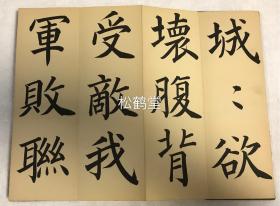 城⺀欲
壊腹背
受敵我
軍敗聯
松鹤堂